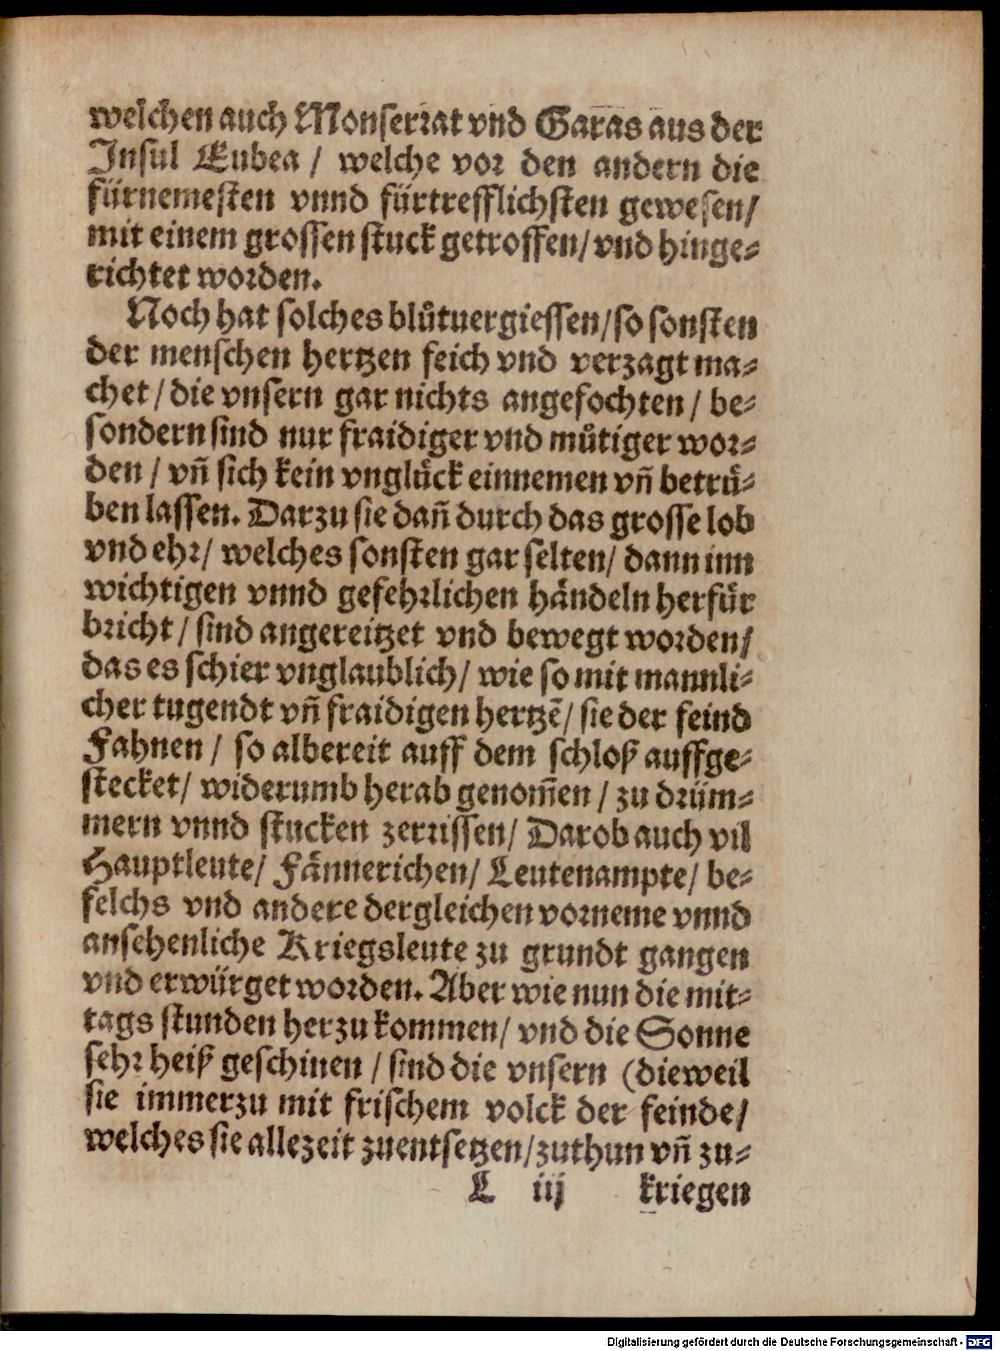 welchen auch Monserrat vnd Garas aus der
Insul Eubea / welche vor den andern die
fürnemesten vnnd fürtrefflichsten gewesen/
mit einem grossen stuck getroffen/ vnd hinge-
richtet worden.
Noch hat solches blůtuergiessen/ so sonsten
der menschen hertzen feich vnd verzagt ma-
chet / die vnsern gar nichts angefochten / be-
sondern sind nur fraidiger vnd můtiger wor-
den / vñ sich kein vnglůck einnemen vñ betrů-
ben lassen. Darzu sie dañ durch das grosse lob
vnd ehr/ welches sonsten gar selten/ dann inn
wichtigen vnnd gefehrlichen håndeln herfür
bricht / sind angereitzet vnd bewegt worden/
das es schier vnglaublich/ wie so mit mannli-
cher tugendt vñ fraidigen hertzẽ/ sie der feind
Fahnen / so albereit auff dem schloß auffge-
stecket/ widerumb herab genom̃en / zu drüm-
mern vnnd stucken zerrissen/ Darob auch vil
Hauptleute/ Fånnerichen/ Leutenampte/ be-
felchs vnd andere dergleichen vorneme vnnd
ansehenliche Kriegsleute zu grundt gangen
vnd erwürget worden. Aber wie nun die mit-
tags stunden herzu kommen/ vnd die Sonne
sehr heiß geschinen / sind die vnsern (dieweil
sie immerzu mit frischem volck der feinde/
welches sie allezeit zuentsetzen/ zuthun vñ zu-
L iij kriegen
Digitalisierung gefördert durch die Deutsche Forschungsgemeinschaft - DFG